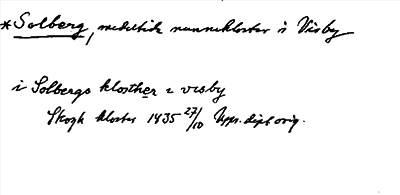 *Solberg, medeltida nunnekloster i Visby
i Solbergs klosther i visby
Skogk kloster 1435 27/10 Upps. dipl. orig.